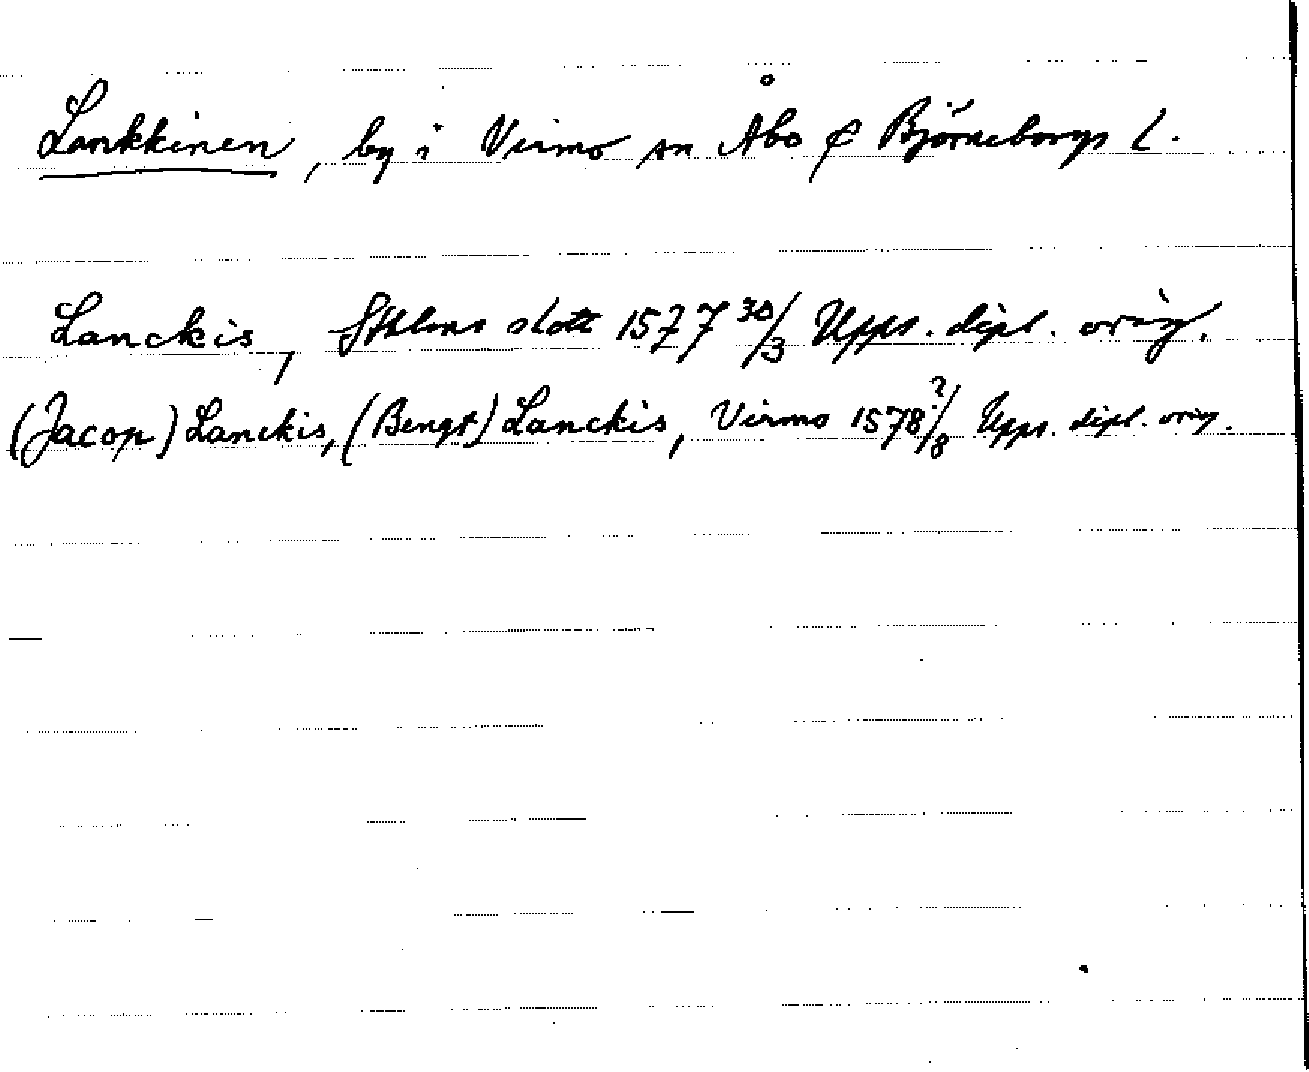 Lankkinen, by i Virmo sn Åbo & Björneborgs l.
Lanckis, Sthlms slott 1577 30/3 Upps. dipl. orig.
(Jacop) Lanckis, (Bengt) Lanckis, Virmo 1578 ?/8 Upps. dipl. orig.